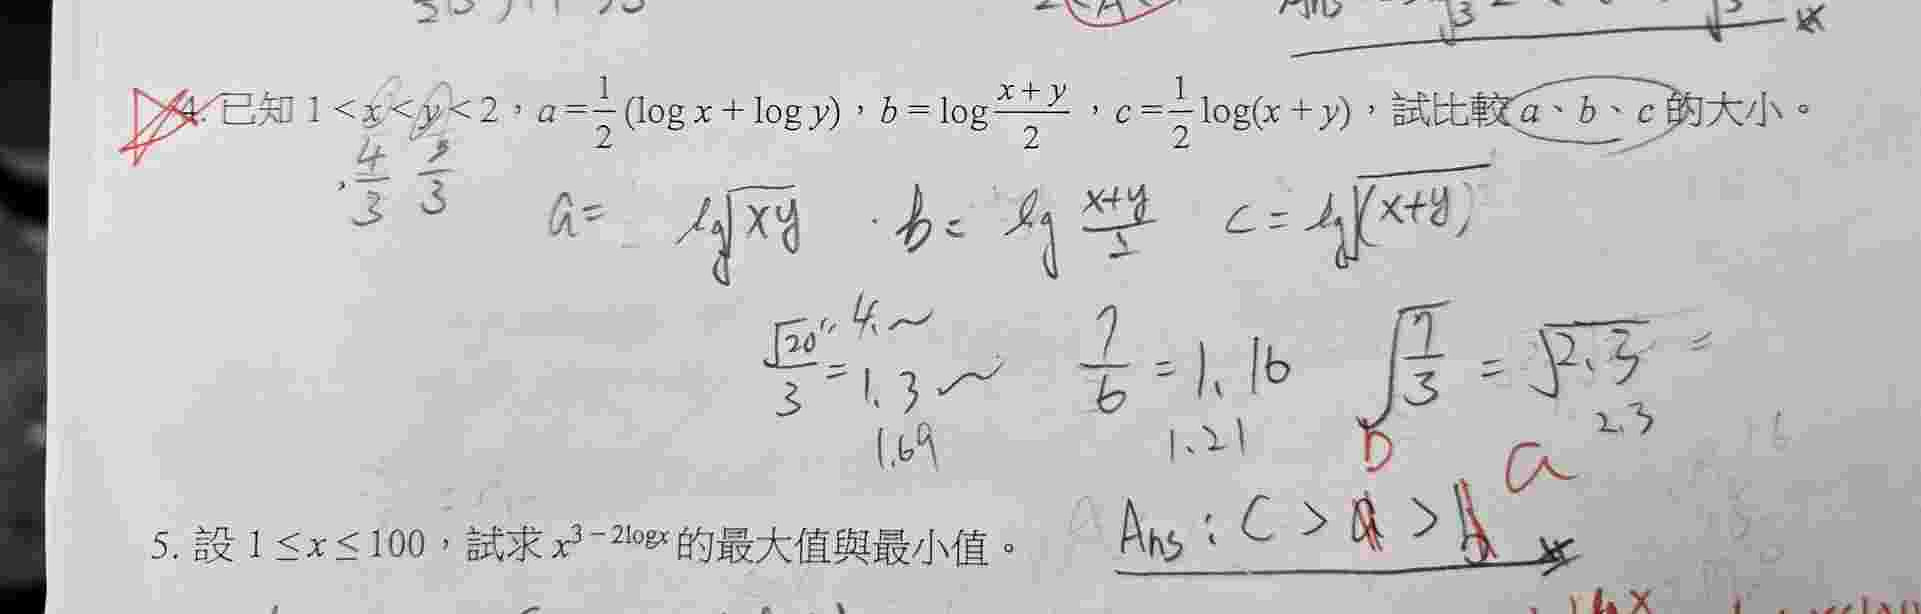 Ans
4. 已知 1 < x < y < 2，a = 1/2 (log x + log y)，b = log (x + y)/2，c = 1/2 log(x + y)，試比較 a、b、c 的大小。
4/3 5/3
a = lg√xy · b = lg (x+y)/2 c = lg√(x+y)
√20/3 = 4.~ 1.3~ 7/6 = 1.16 √7/3 = √2.3 =
1.69 1.21 2.3
b a
Ans : C > a > b
5. 設 1 ≤ x ≤ 100，試求 x^(3 − 2logx) 的最大值與最小值。